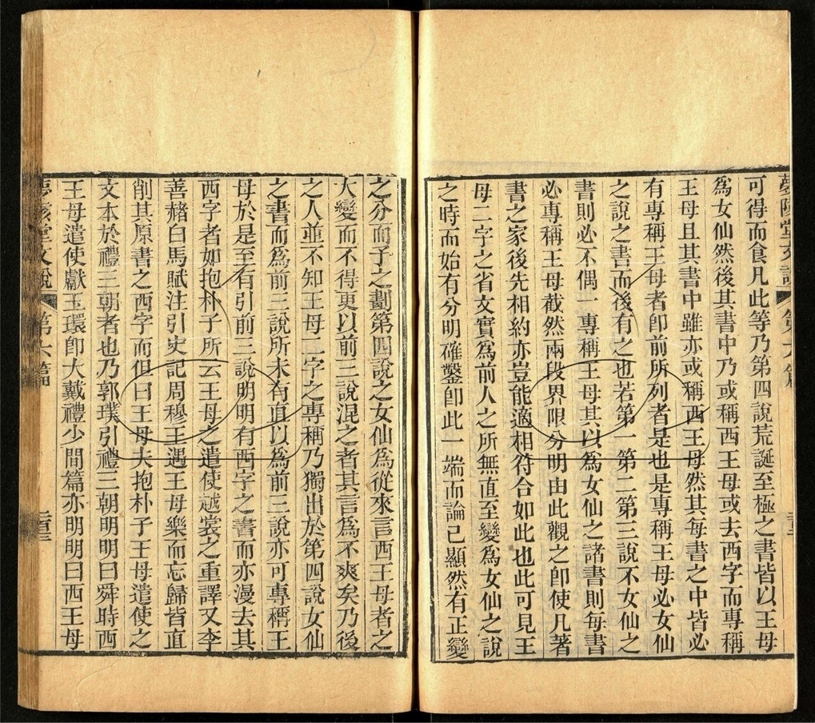 夢陔堂文說
第六篇
可得而食凡此等乃第四說荒誕至極之書皆以王母
爲女仙然後其書中乃或稱西王母或去西字而專稱
王母且其書中雖亦或稱西王母然其每書之中皆必
有專稱王母者卽前所列者是也是專稱王母必女仙
之說之書而後有之也若第一第二第三說不女仙之
書則必不偶一專稱王母其以爲女仙之諸書則每書
必專稱王母截然兩段界限分明由此觀之卽使凡著
書之家後先相約亦豈能適相符合如此也此可見王
母二字之省文實爲前人之所無直至變爲女仙之說
之時而始有分明確鑿卽此一端而論已顯然有正變
之分而子之劃第四說之女仙爲從來言西王母者之
大變而不得更以前三說混之者其言爲不爽矣乃後
之人並不知王母二字之專稱乃獨出於第四說女仙
之書而爲前三說所未有直以爲前三說亦可專稱王
母於是至有引前三說明明有西字之書而亦漫去其
西字者如抱朴子所云王母之遣使越裳之重譯又李
善赭白馬賦注引史記周穆王遇王母樂而忘歸皆直
削其原書之西字而但曰王母夫抱朴子王母遣使之
文本於禮三朝者也乃郭璞引禮三朝明明曰舜時西
王母遣使獻玉環卽大戴禮少閒篇亦明明曰西王母
夢陔堂文說
第六篇